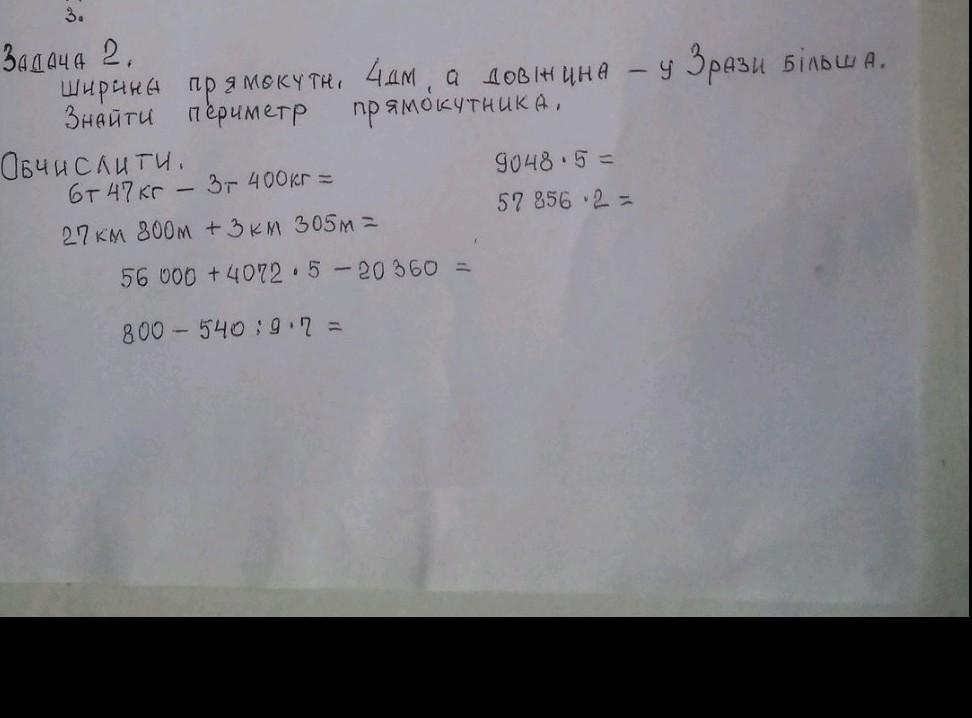 3.
Задача 2.
Ширина прямокутн. 4дм, а довжина – у 3 рази більша.
Знайти периметр прямокутника.
Обчислити.
6т 47кг – 3т 400кг =
9048 · 5 =
57 856 · 2 =
27км 800м + 3км 305м =
56 000 + 4072 · 5 – 20 360 =
800 – 540 : 9 · 7 =